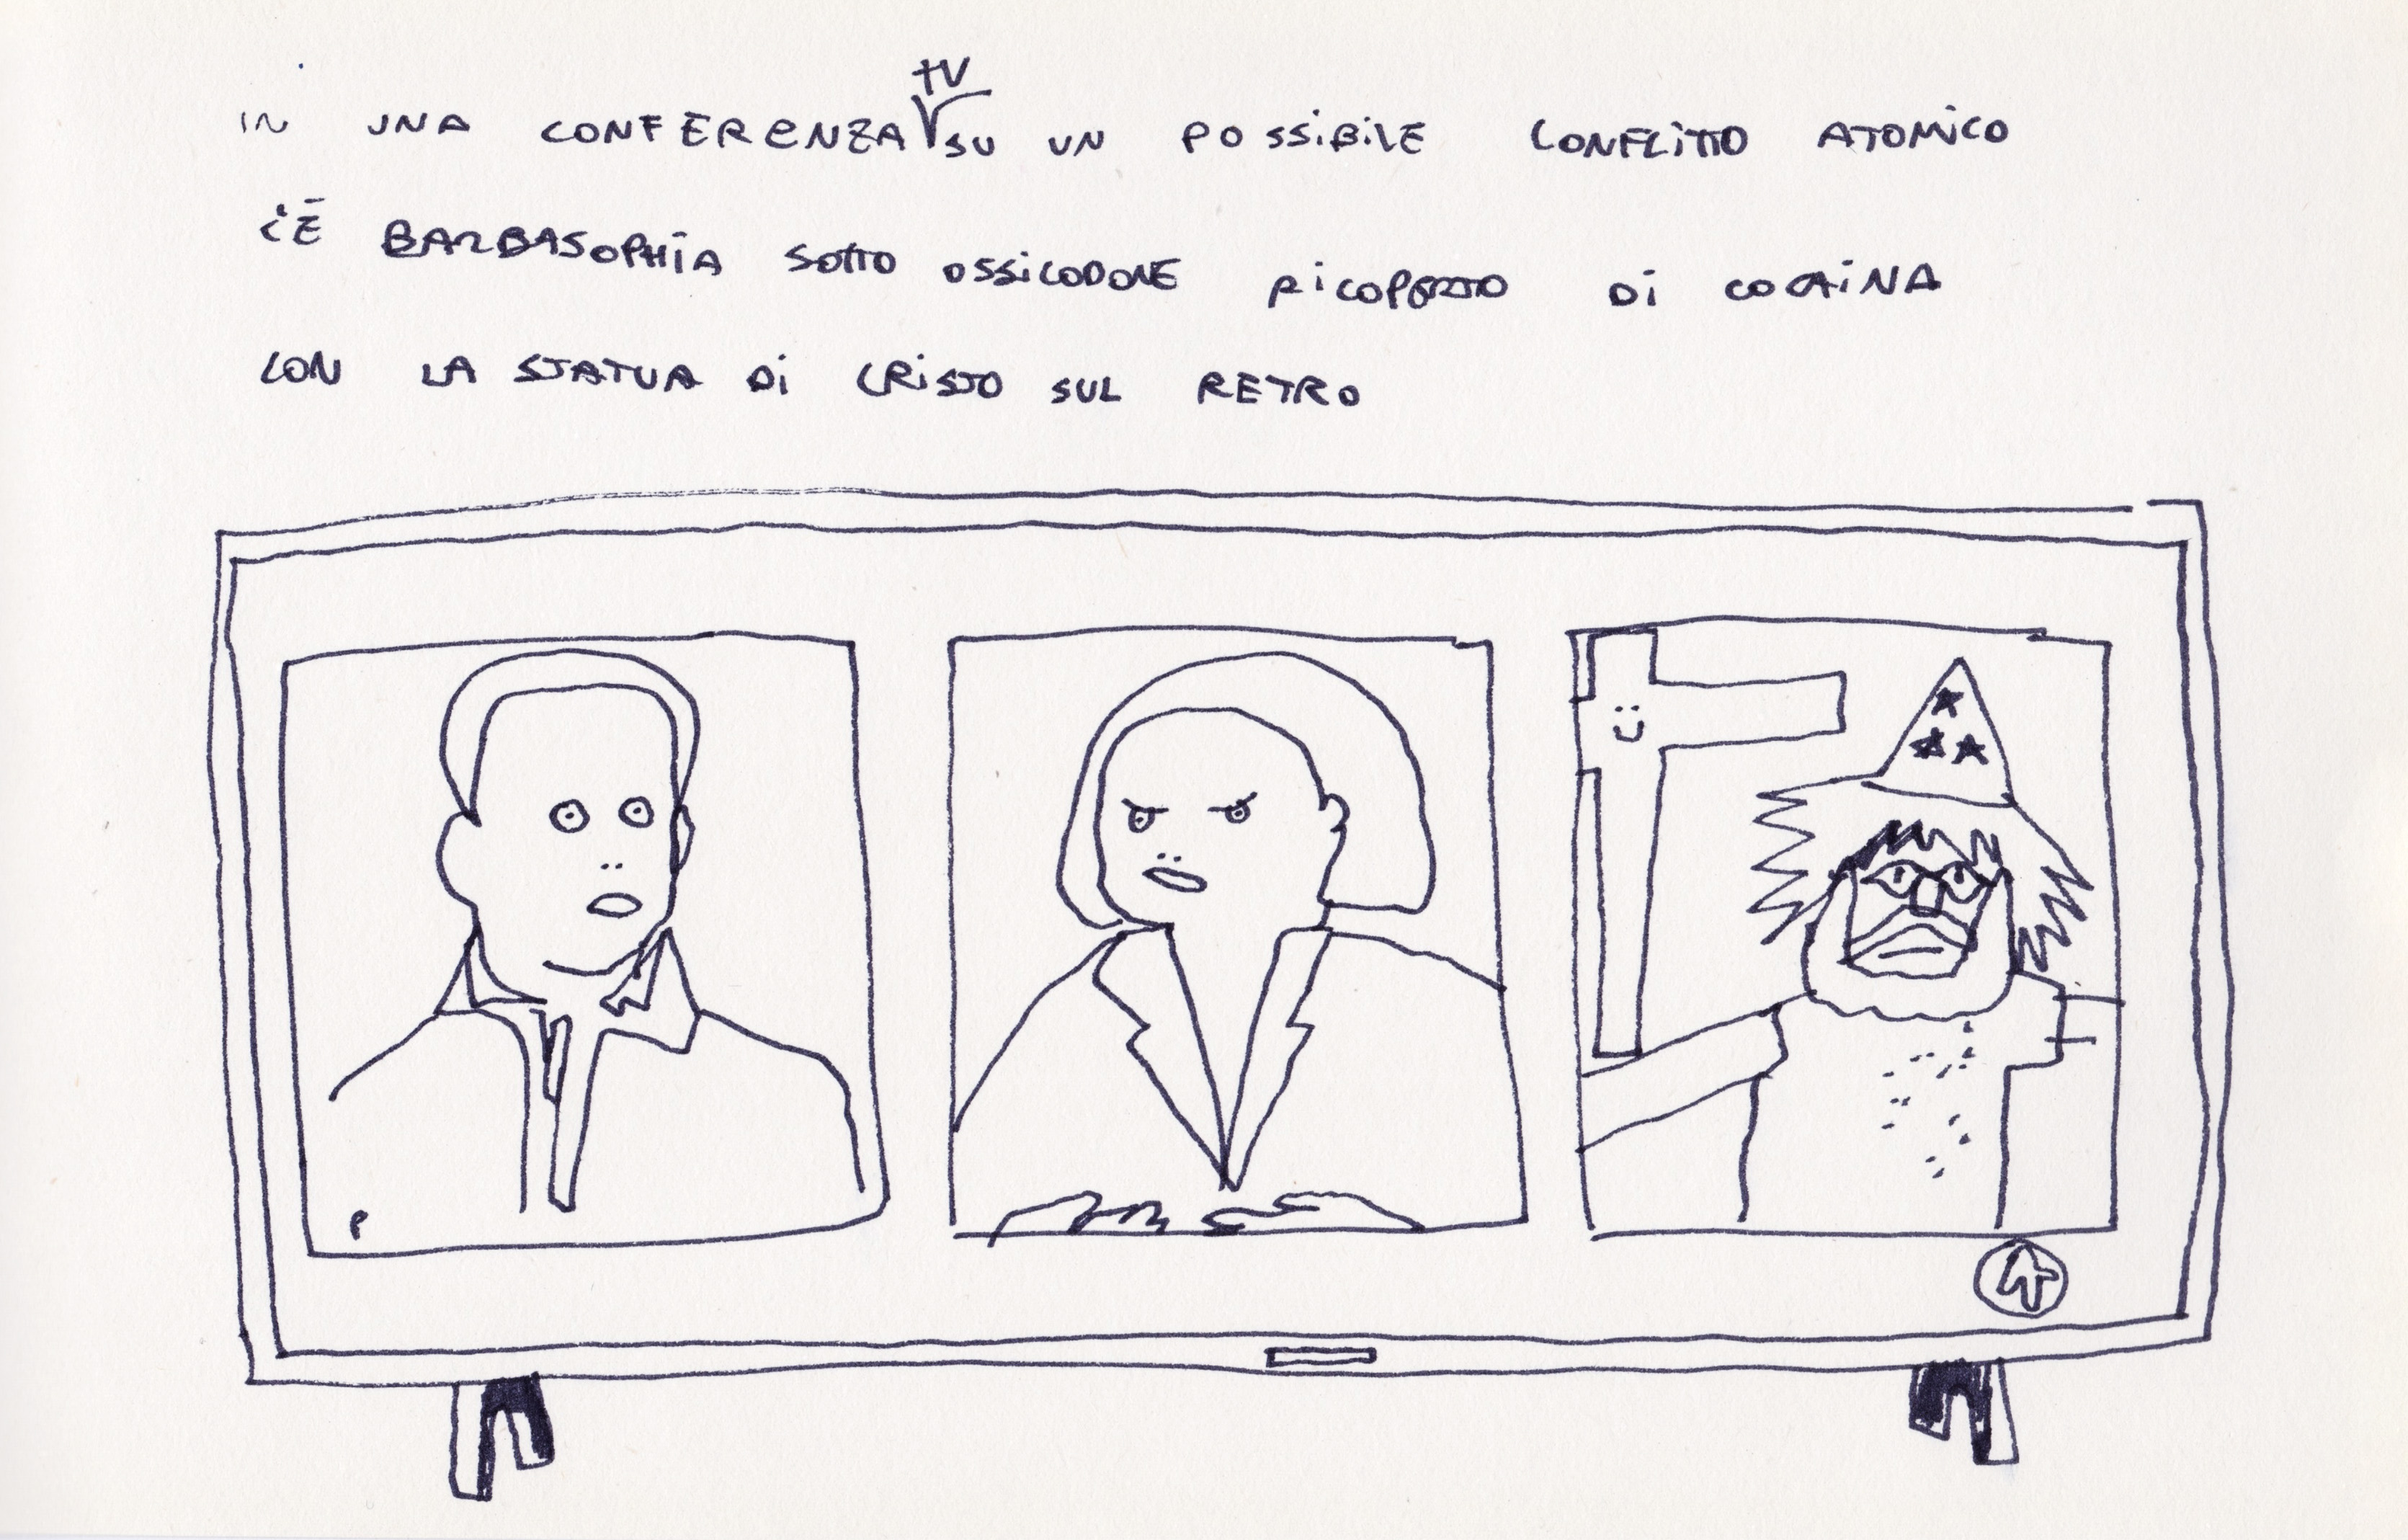 IN UNA CONFERENZA TV SU UN POSSIBILE CONFLITTO ATOMICO
C'È BARBASOPHIA SOTTO OSSICODONE RICOPERTO DI COCAINA
CON LA STATUA DI CRISTO SUL RETRO
P